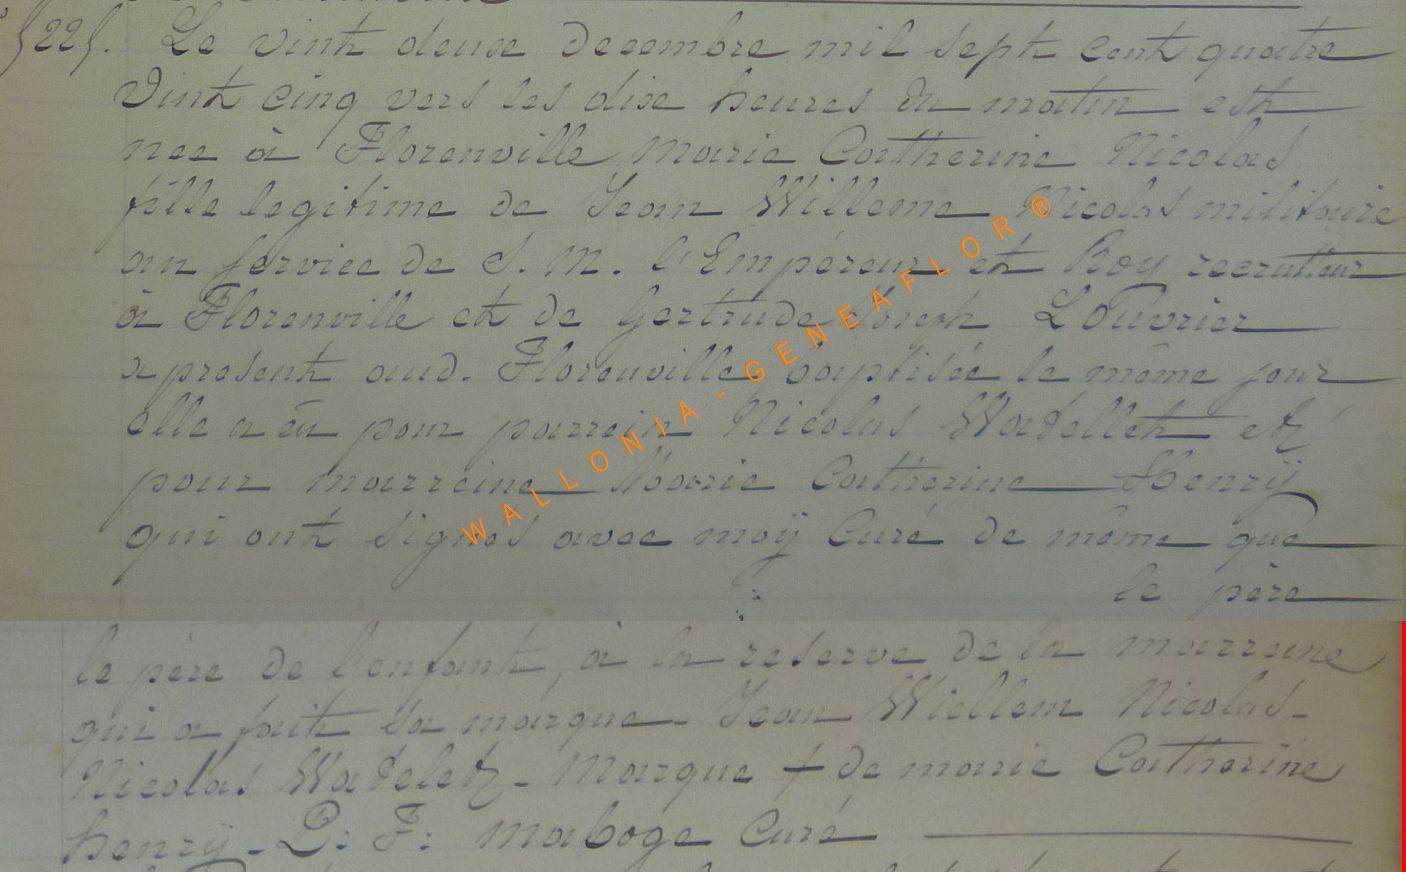 522s. Le vint deuxe decembre mil sept cent quatre
vint cinq vers les dix heures du matin est
née à Florenville Marie Catherine Nicolas
fille legitime de Jean Willeme Nicolas militaire
au service de S. M. l'Empéreur et Roy recrutteur
à Florenville et de Gertrude Joseph Louvrier
a present aud. Florenville baptisée le même jour
elle a eu pour parrein Nicolas Watellet et
pour marreine Marie Catherine Henrÿ
qui ont signés avec moÿ Curé de même que
le père
le père de l'enfant, à la reserve de la marreine
qui a fait sa marque - Jean Wiellem Nicolas -
Nicolas Wateletz - Marque + de marie Catherine
henrÿ - P: F: Maboge Curé
WALLONIA - GENEAFLOR ®